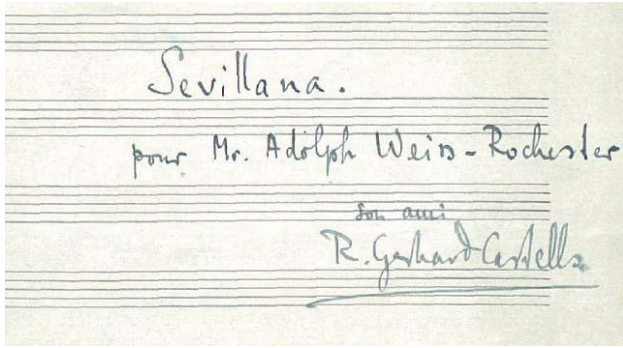 Sevillana.
pour Mr. Adolph Weiss-Rochester
son ami
R. Gerhard Castells